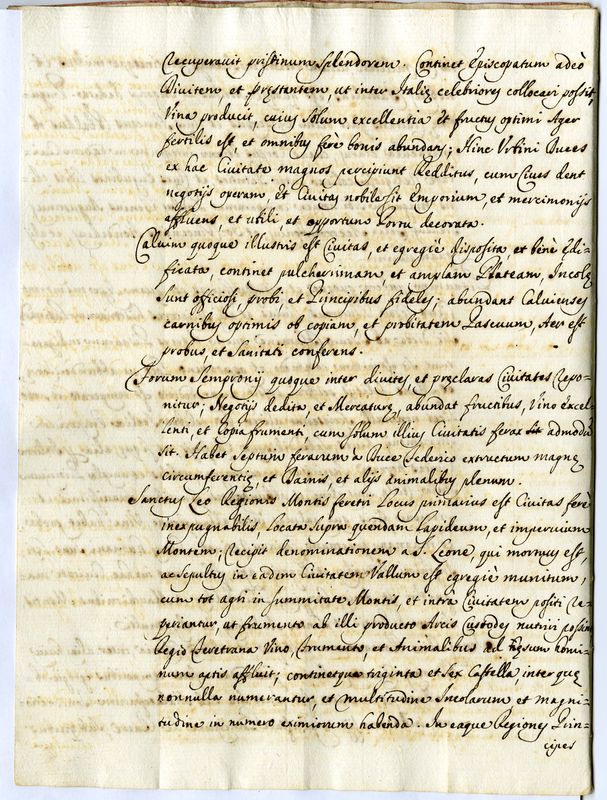 recuperavit pristinum splendorem. Continet Episcopatum adeò
Divitem, et pręstantem, ut inter Italię celebriores collocari possit,
Vina producit, cuius solum excellentia et fructus optimi Ager
fertilis est, et omnibus ferè bonis abundans; Hinc Urbini Duces
ex hac Civitate magnos percipiunt Redditus, cum Cives dent
negotijs operam, et Civitas nobile sit Emporium, et mercimonijs
affluens, et utili, et opportuno Portu decorata.
Calvium quoque illustris est Civitas, et egregiè disposita, et benè Edi-
ficata, continet pulcherrimam, et amplam Plateam, Incolę
sunt officiosi, probi, et Principibus fideles; abundant Calvienses
carnibus optimis ob copiam, et probitatem Pascuum, Aer est
probus, et Sanitati conferens.
Forum Sempronij quoque inter divites, et pręclaras Civitates repo-
nitur; Negotijs dedita, et Mercaturę, abundat fructibus, Vino excel-
lenti, et Copia frumenti, cum solum illius Civitatis ferax sit admodū
sit. Habet Septum ferarum à Duce Federico extructum magnę
circumferentię, et Damis, et alijs animalibus plenum.
Sanctus Leo Regionis Montis feretri Locus primarius est Civitas ferè
inexpugnabilis Locata supra quendam Lapideum, et impervium
Montem; recipit denominationem a S. Leone, qui mortuus est,
ac sepultus in eadem Civitatem Vallum est egregiè munitum,
cum tot agri in summitate Montis, et intrà Civitatem positi re-
periantur, ut frumento ab illi producto Arcis Custodes nutriri possint
Regio Feretrana Vino, frumento, et Animalibus ad esum homi-
num aptis affluit; continetque triginta et sex Castella inter quę
nonnulla numerantur, et multitudine Incolarum et magni-
tudine in numero eximiorum habenda. In eaque Regiones Prin-
cipes